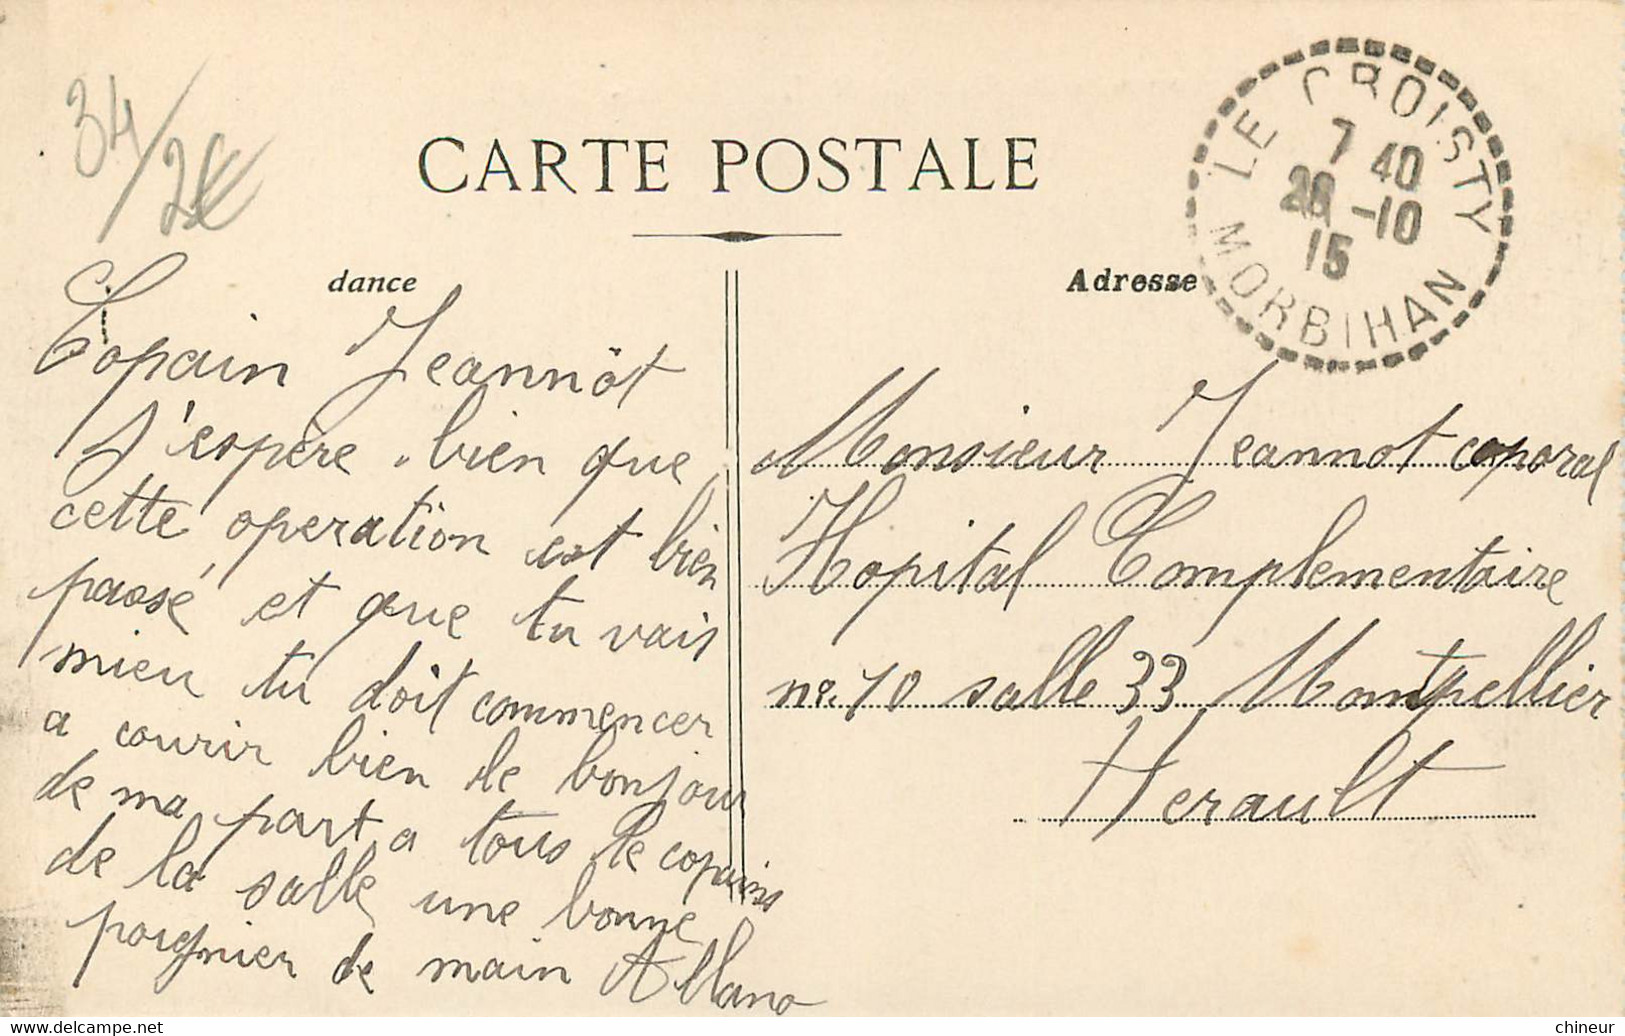 34/2€
CARTE POSTALE
LE CROISTY
7 40
26 -10
15
MORBIHAN
dance
Adresse
Copain Jeannôt
J'espère bien que
cette operation est bien
passé et que tu vais
mieu tu doit commencer
a courir bien le bonjour
de ma part a tous le copains
de la salle une bonne
poignier de main Allano
Monsieur Jeannot caporal
Hopital Complementaire
no. 10 salle 33 Montpellier
Herault
chineur